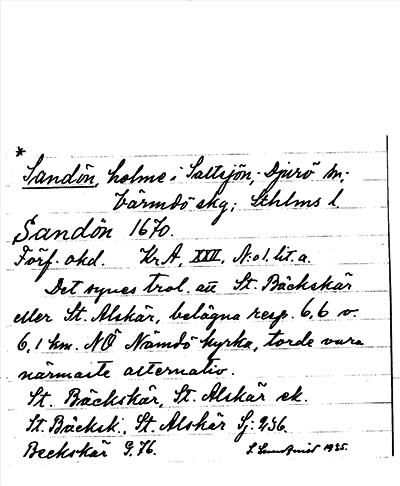 *
Sandön, holme i Saltsjön, Djurö sn,
Värmdö skg; Sthlms l.
Sandön 1670.
Förf. okd. Kr.A, XXII, N:o 1. lit. a.
Det synes trol. att St. Bäckskär
eller St. Alskär, belägna resp. 6,6 o.
6,1 km. NÖ Nämdö kyrka, torde vara
närmaste alternativ.
St. Bäckskär, St. Alskär ek.
St. Bäcksk., St. Alskär Sj: 236.
Beckskär G. 76. 1935.